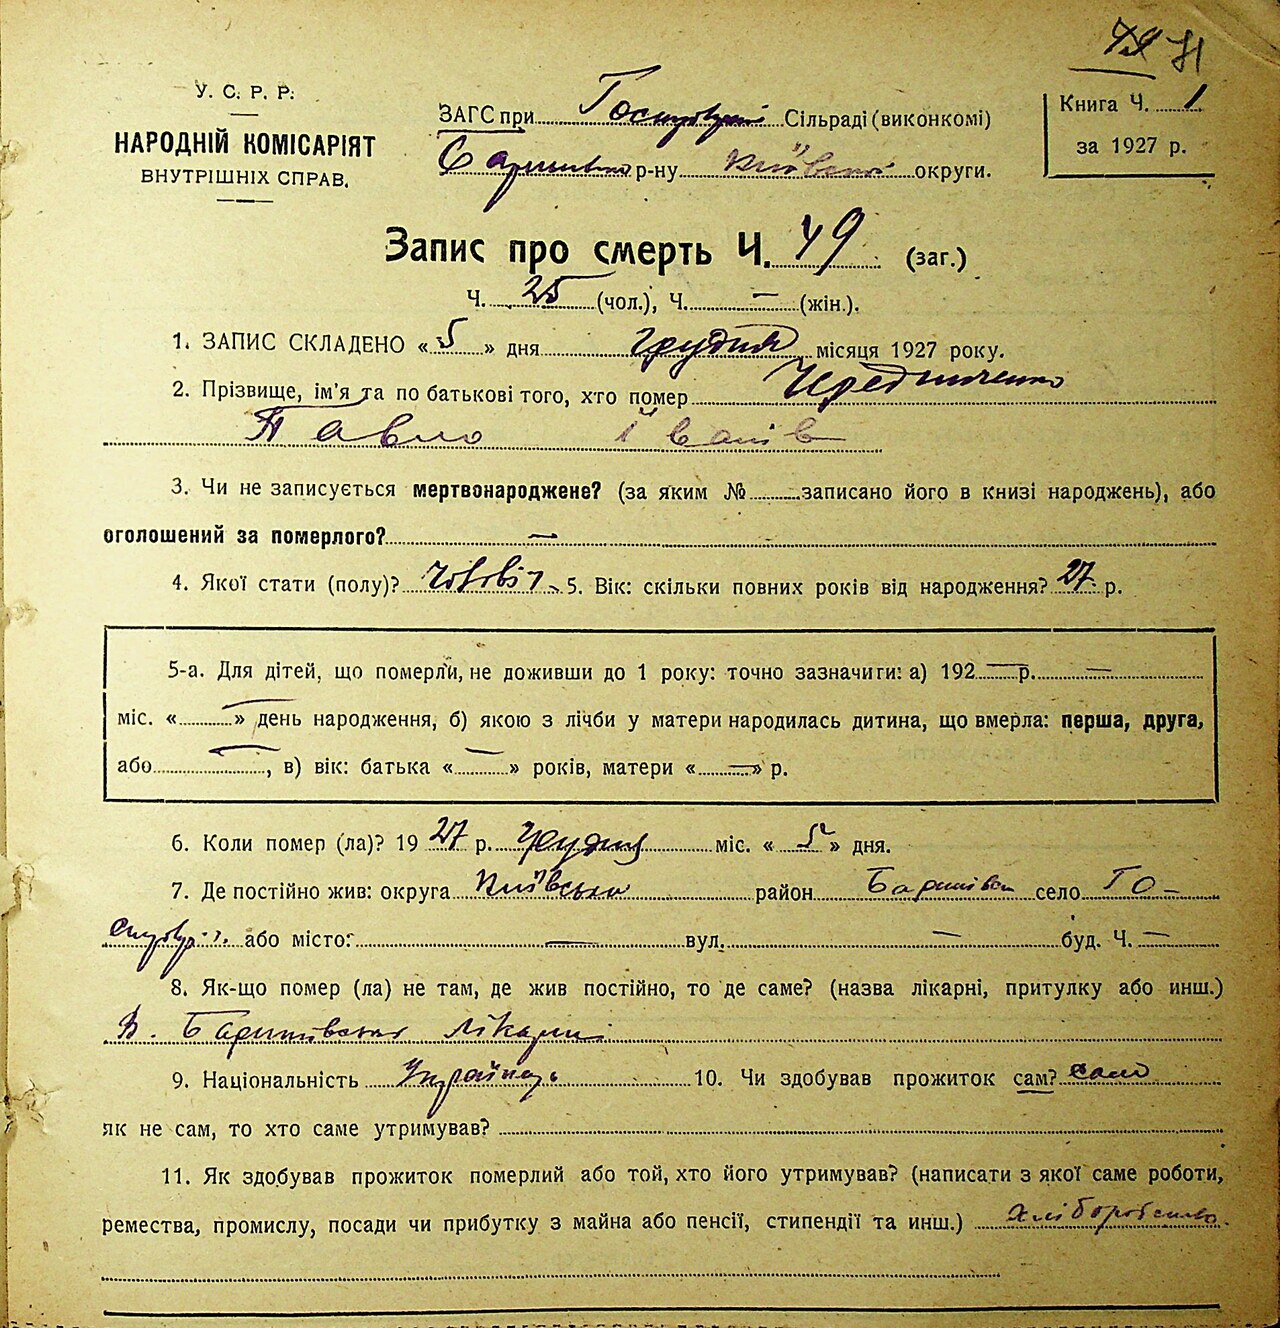 У. С. Р. Р.
НАРОДНІЙ КОМІСАРІЯТ
ВНУТРІШНІХ СПРАВ.
ЗАГС при Сільраді (виконкомі)
р-ну Київської округи.
Книга Ч. 1
за 1927 р.
Запис про смерть Ч. 49 (заг.)
Ч. 25 (чол.), Ч. — (жін.).
1. ЗАПИС СКЛАДЕНО «5» дня грудня місяця 1927 року.
2. Прізвище, ім'я та по батькові того, хто помер Чередниченко
Павло Іванів
3. Чи не записується мертвонароджене? (за яким № записано його в книзі народжень), або
оголошений за померлого? —
4. Якої стати (полу)? 5. Вік: скільки повних років від народження? 27 р.
5-а. Для дітей, що померли, не доживши до 1 року: точно зазначити: а) 192 — р. —
міс. « — » день народження, б) якою з лічби у матери народилась дитина, що вмерла: перша, друга,
або —, в) вік: батька « — » років, матери « — » р.
6. Коли помер (ла)? 1927 р. Грудня міс. «5» дня.
7. Де постійно жив: округа Київська район Баришівск село Го-
або місто: — вул. — буд. Ч. —
8. Як-що помер (ла) не там, де жив постійно, то де саме? (назва лікарні, притулку або инш.)
В. Баришівській лікарні
9. Національність Українець 10. Чи здобував прожиток сам? само
як не сам, то хто саме утримував?
11. Як здобував прожиток померлий або той, хто його утримував? (написати з якої саме роботи,
ремества, промислу, посади чи прибутку з майна або пенсії, стипендії та инш.) хліборобство